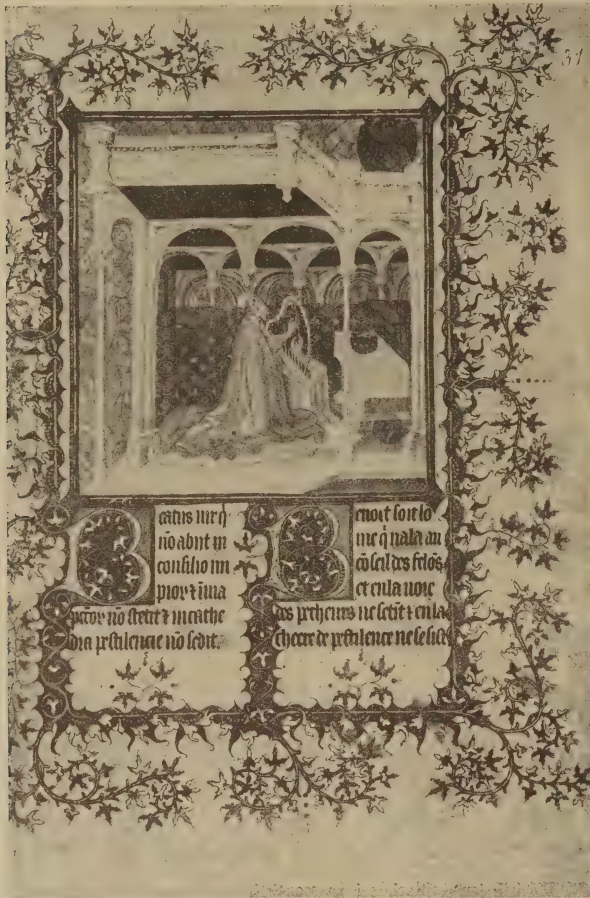 31
Beatus vir q̄
nō abiit in
consilio im
pior ⁊ ī uia
pctōr nō stetit ⁊ in cathe
dra pestilencie nō sedit.
Benoit soit lo
me q̄ nala au
cōseil des felōs
et en la uoie
des pecheurs ne setit ⁊ en la
cheere de pestilence ne se sist